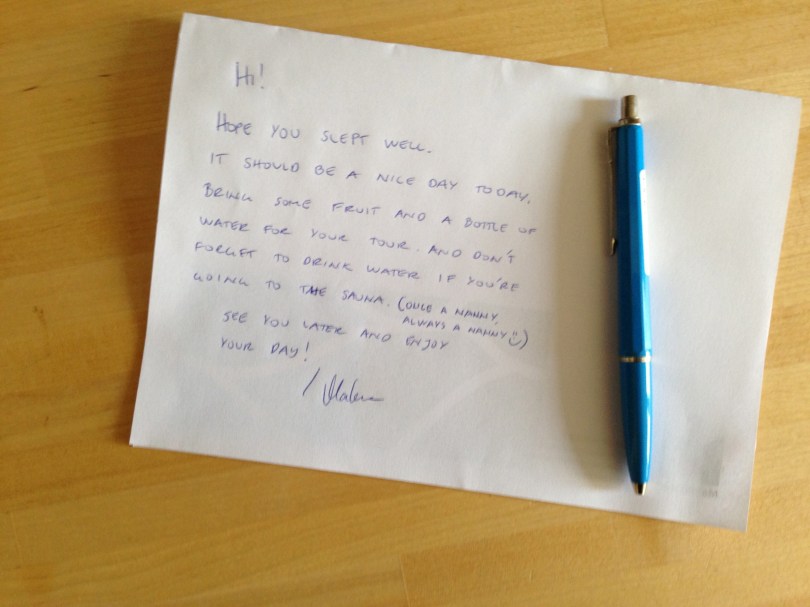 HI!
HOPE YOU SLEPT WELL.
IT SHOULD BE A NICE DAY TODAY.
BRING SOME FRUIT AND A BOTTLE OF
WATER FOR YOUR TOUR. AND DON'T
FORGET TO DRINK WATER IF YOU'RE
GOING TO THE SAUNA. (ONCE A NANNY,
ALWAYS A NANNY ☺)
SEE YOU LATER AND ENJOY
YOUR DAY!
/